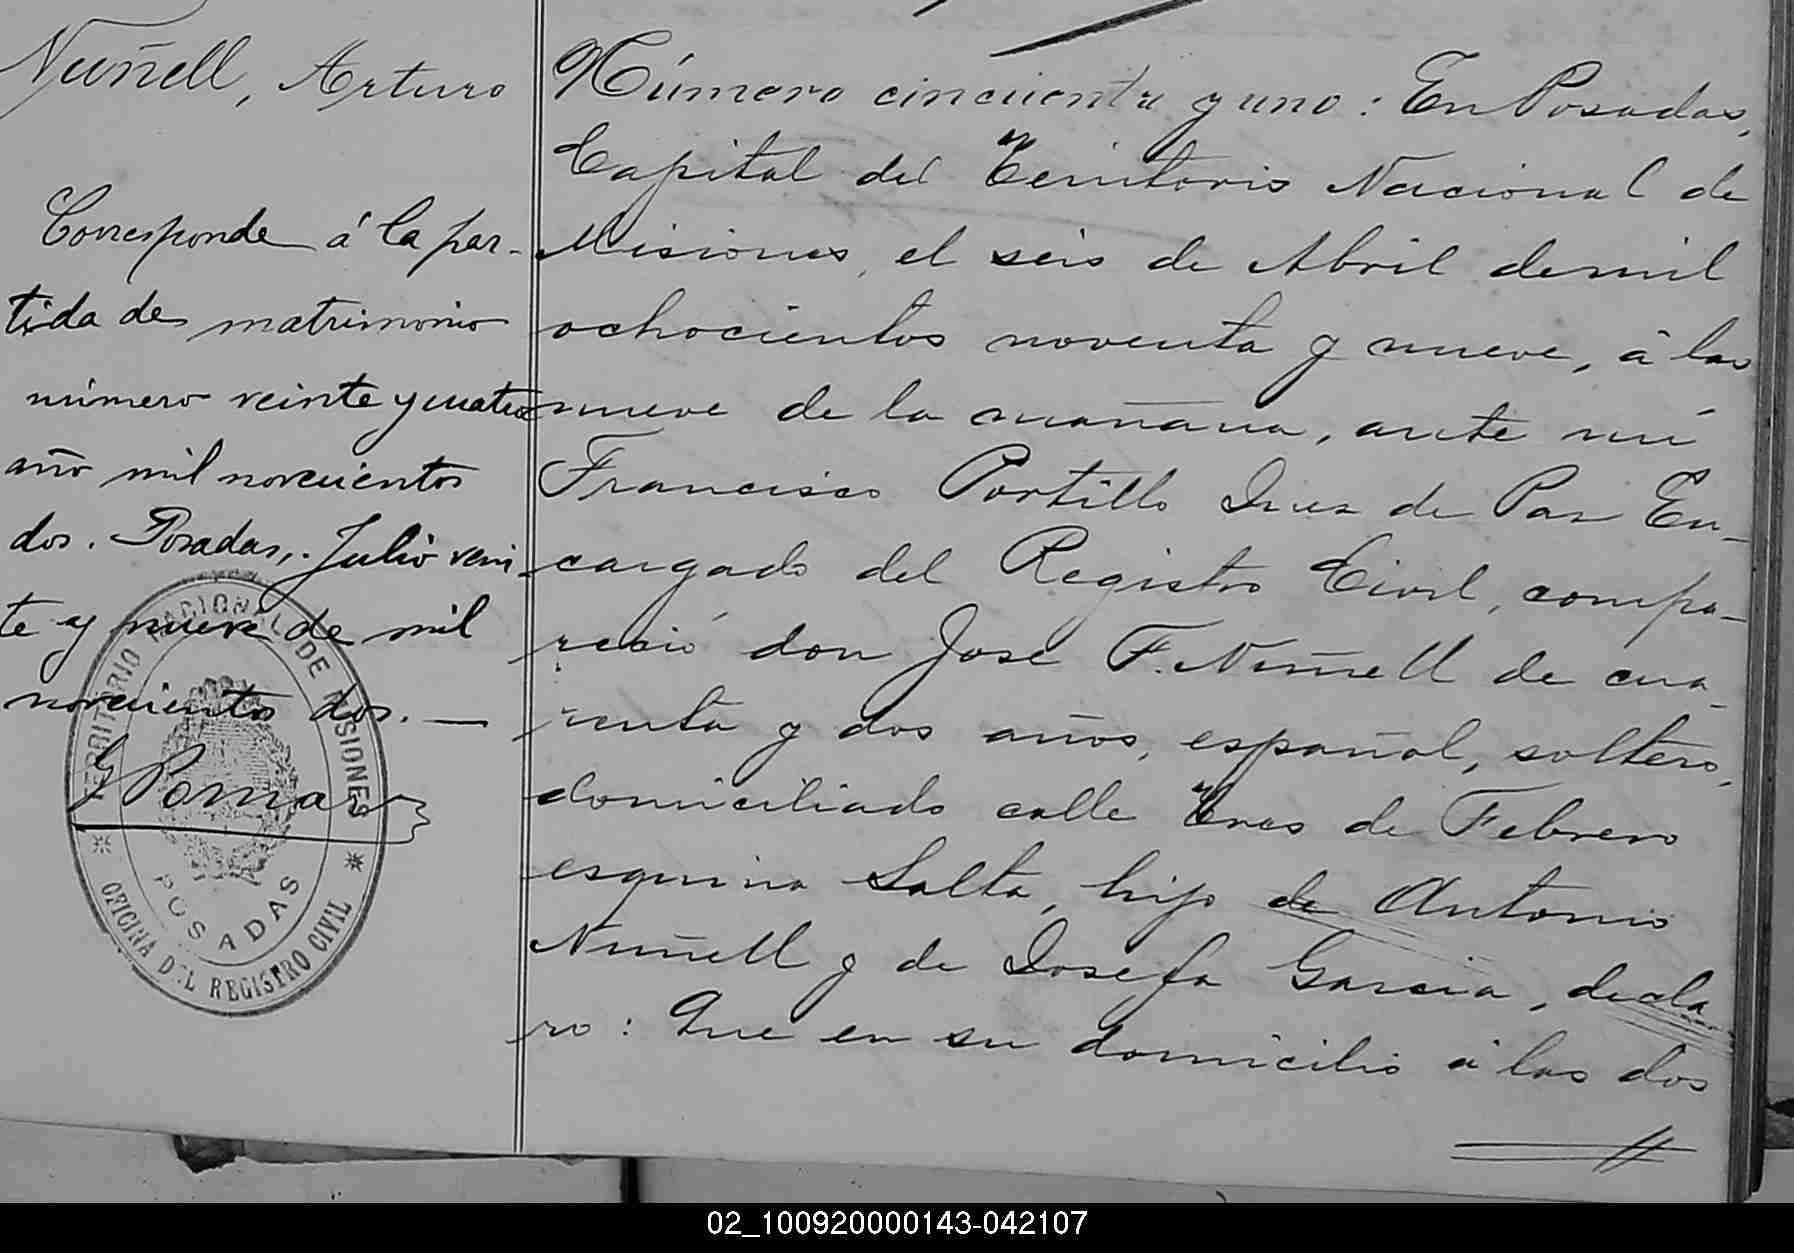 Nuñell, Arturo
Corresponde á la par-
tida de matrimonio
número veinte y cuatro
año mil novecientos
dos. Posadas, Julio vein-
te y nueve de mil
novecientos dos. —
G Pomar
TERRITORIO NACIONAL DE MISIONES
POSADAS
OFICINA DEL REGISTRO CIVIL
Número cincuenta y uno: En Posadas,
Capital del Territorio Nacional de
Misiones, el seis de Abril de mil
ochocientos noventa y nueve, á las
nueve de la mañana, ante mí
Francisco Portillo Juez de Paz En-
cargado del Registro Civil, compa-
reció don José F. Nuñell de cua-
renta y dos años, español, soltero,
domiciliado calle Tres de Febrero
esquina Salta, hijo de Antonio
Nuñell y de Josefa Garcia, decla
ro: Que en su domicilio á las dos
02_100920000143-042107